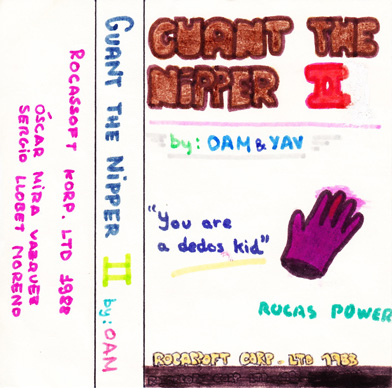 ROCASSOFT KORP. LTD 1988
ÓSCAR MIRA VAZQUEZ
SERGIO LLOBET MORENO
GUANT THE NIPPER II by: OAM
GUANT THE
NIPPER II
by: OAM & YAV
"you are
a dedos kid"
RUCAS POWER
ROCASOFT CORP. LTD 1988